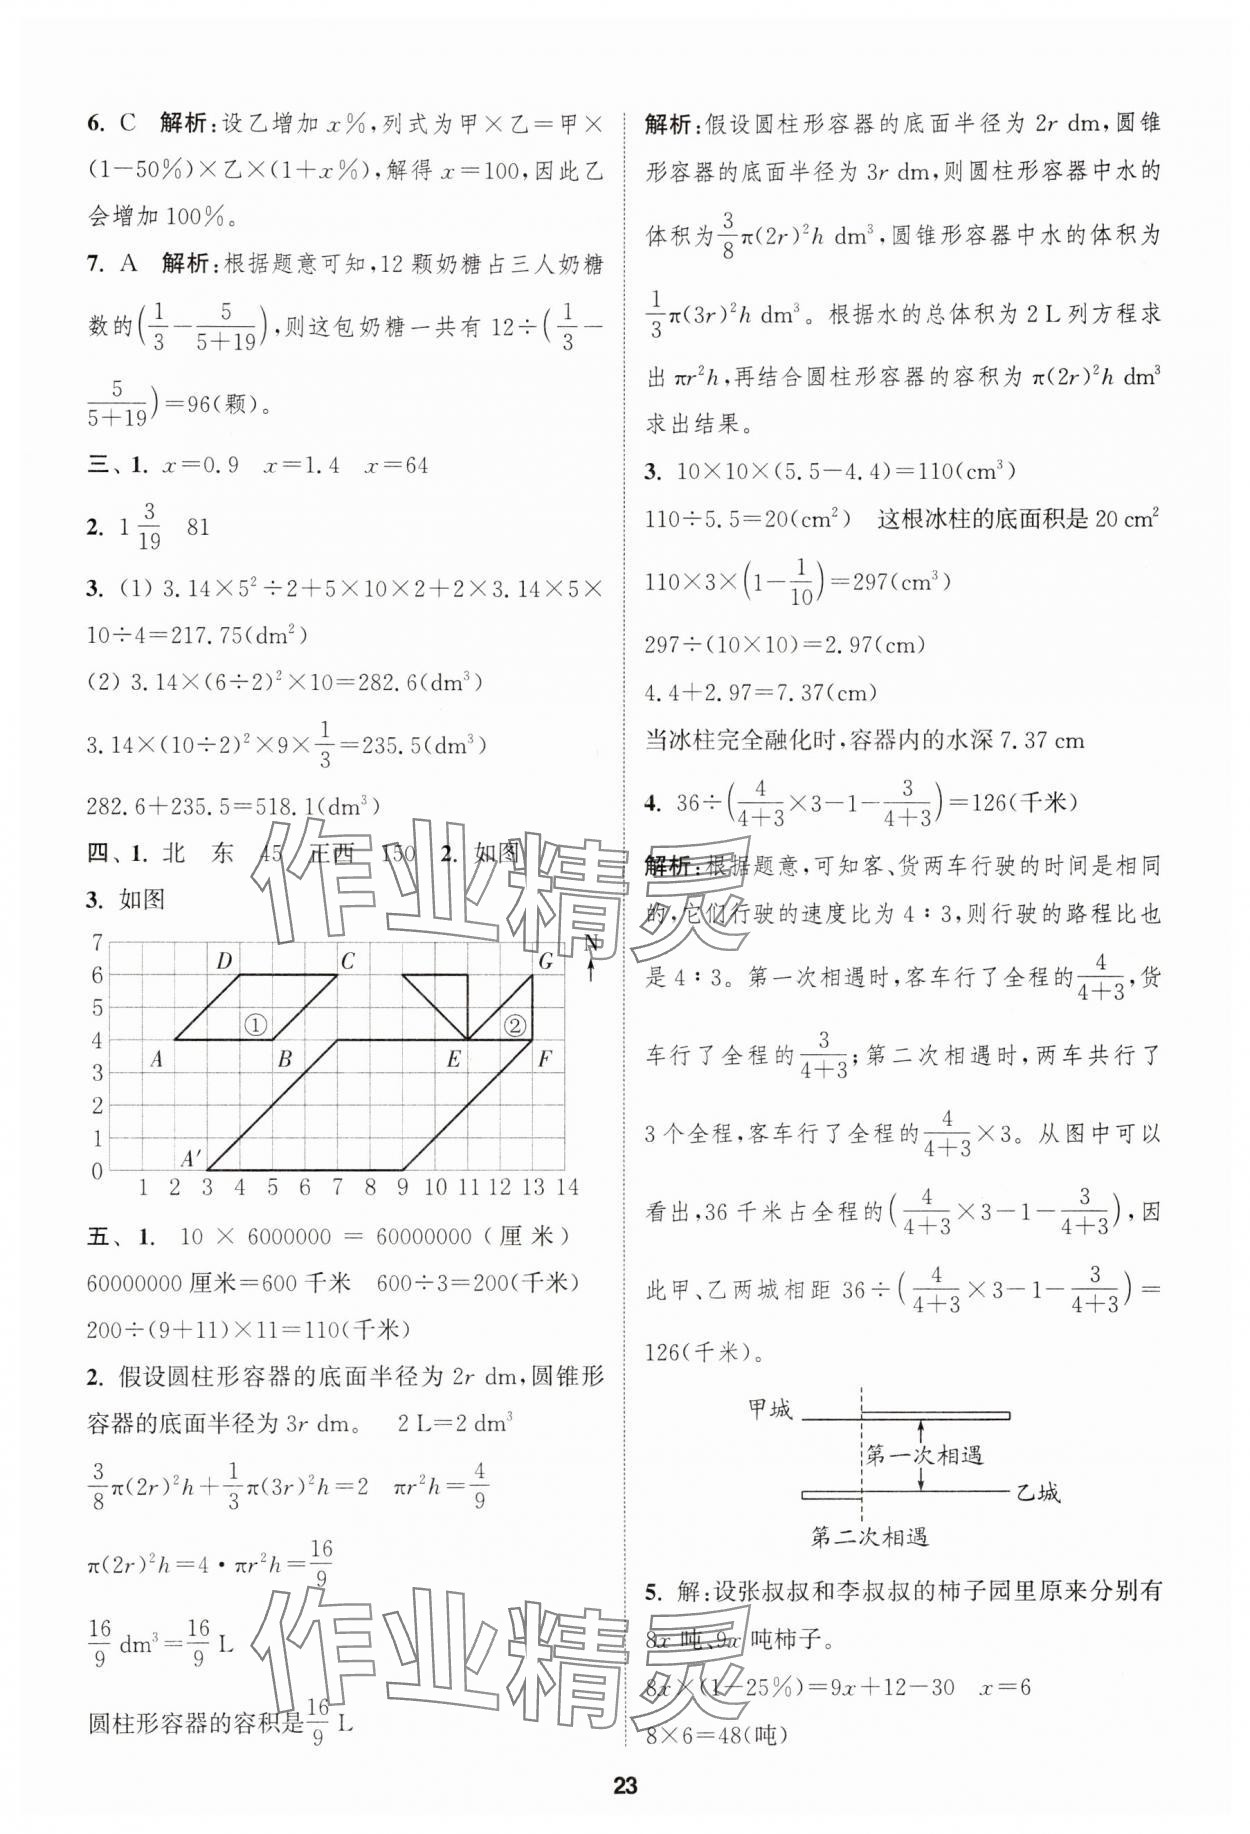 6. C 解析:设乙增加 x%,列式为甲×乙=甲×
(1-50%)×乙×(1+x%),解得 x=100,因此乙
会增加100%。
7. A 解析:根据题意可知,12 颗奶糖占三人奶糖
数的(1/3-5/(5+19)),则这包奶糖一共有 12÷(1/3-
5/(5+19))=96(颗)。
三、1. x=0.9 x=1.4 x=64
2. 1 3/19 81
3. (1) 3.14×5²÷2+5×10×2+2×3.14×5×
10÷4=217.75(dm²)
(2) 3.14×(6÷2)²×10=282.6(dm³)
3.14×(10÷2)²×9×1/3=235.5(dm³)
282.6+235.5=518.1(dm³)
四、1. 北 东 45 正西 150 2. 如图
3. 如图
7
6
5
4
3
2
1
0
D C G N
① ②
A B E F
A′
1 2 3 4 5 6 7 8 9 10 11 12 13 14
五、1. 10 × 6000000 = 60000000(厘米)
60000000 厘米=600 千米 600÷3=200(千米)
200÷(9+11)×11=110(千米)
2. 假设圆柱形容器的底面半径为 2r dm,圆锥形
容器的底面半径为 3r dm。 2 L=2 dm³
3/8π(2r)²h+1/3π(3r)²h=2 πr²h=4/9
π(2r)²h=4·πr²h=16/9
16/9 dm³=16/9 L
圆柱形容器的容积是16/9 L
解析:假设圆柱形容器的底面半径为 2r dm,圆锥
形容器的底面半径为 3r dm,则圆柱形容器中水的
体积为3/8π(2r)²h dm³,圆锥形容器中水的体积为
1/3π(3r)²h dm³。根据水的总体积为 2 L 列方程求
出 πr²h,再结合圆柱形容器的容积为 π(2r)²h dm³
求出结果。
3. 10×10×(5.5-4.4)=110(cm³)
110÷5.5=20(cm²) 这根冰柱的底面积是 20 cm²
110×3×(1-1/10)=297(cm³)
297÷(10×10)=2.97(cm)
4.4+2.97=7.37(cm)
当冰柱完全融化时,容器内的水深 7.37 cm
4. 36÷(4/(4+3)×3-1-3/(4+3))=126(千米)
解析:根据题意,可知客、货两车行驶的时间是相同
的,它们行驶的速度比为 4∶3,则行驶的路程比也
是 4∶3。第一次相遇时,客车行了全程的4/(4+3),货
车行了全程的3/(4+3);第二次相遇时,两车共行了
3 个全程,客车行了全程的4/(4+3)×3。从图中可以
看出,36 千米占全程的(4/(4+3)×3-1-3/(4+3)),因
此甲、乙两城相距 36÷(4/(4+3)×3-1-3/(4+3))=
126(千米)。
甲城
第一次相遇
乙城
第二次相遇
5. 解:设张叔叔和李叔叔的柿子园里原来分别有
8x 吨、9x 吨柿子。
8x×(1-25%)=9x+12-30 x=6
8×6=48(吨)
作业精灵
作业精灵
23